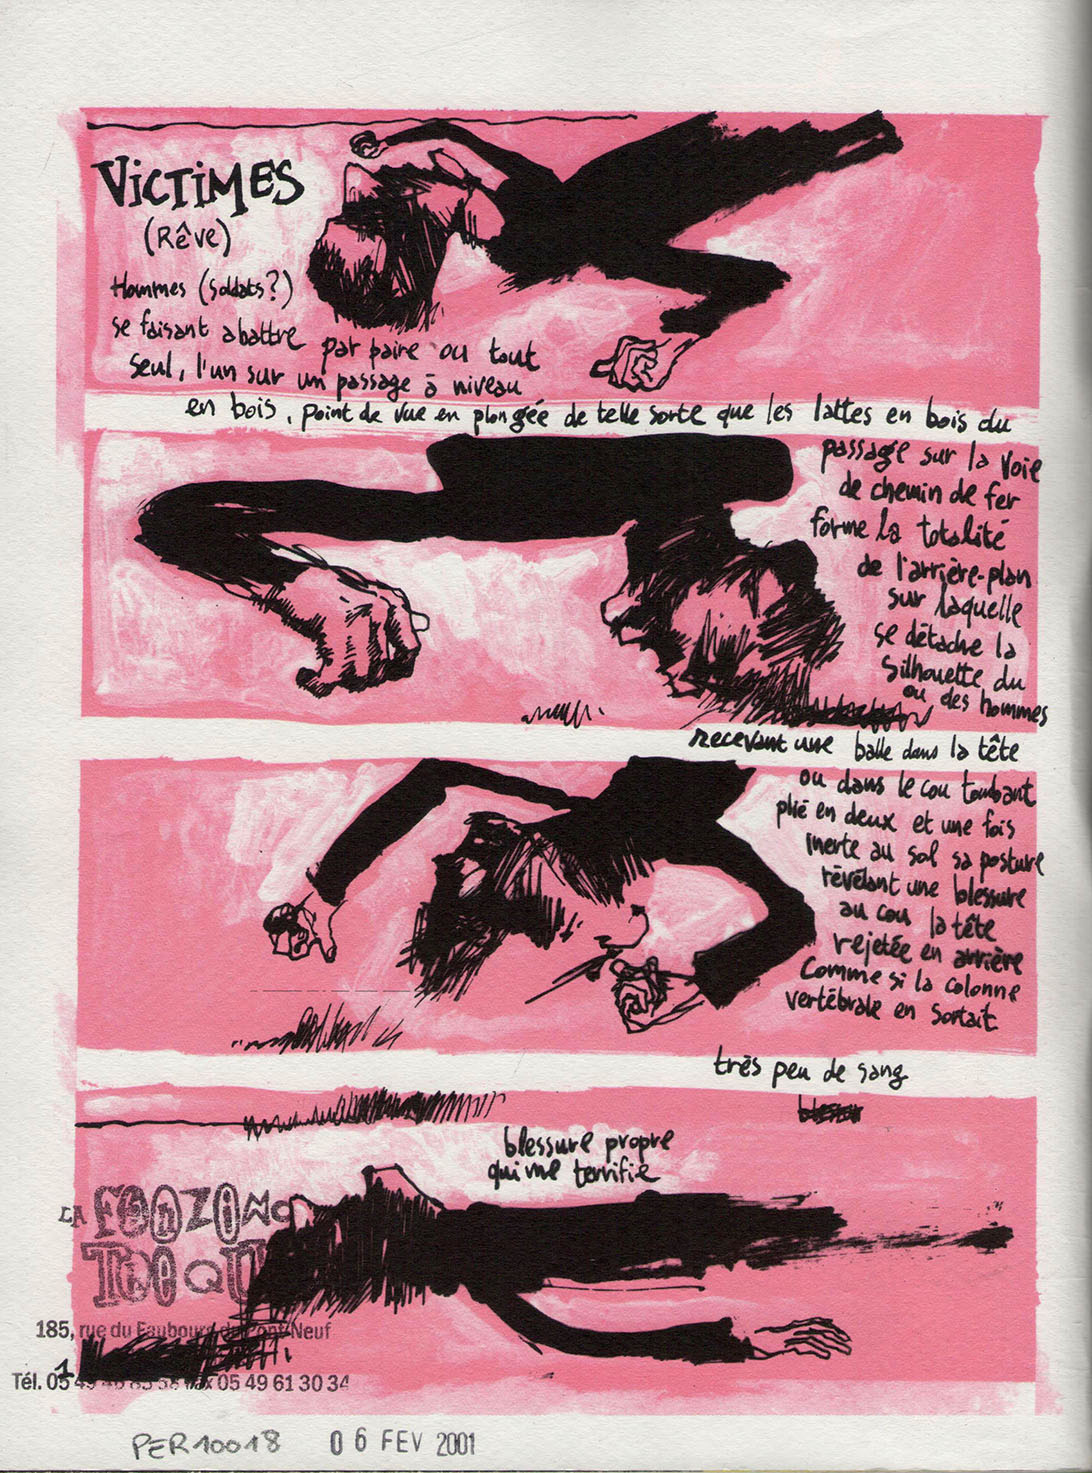 VICTIMES
(Rêve)
Hommes (soldats?)
se faisant abattre par paire ou tout
seul, l'un sur un passage à niveau
en bois, point de vue en plongée de telle sorte que les lattes en bois du
passage sur la voie
de chemin de fer
forme la totalité
de l'arrière-plan
sur laquelle
se détache la
silhouette du
ou des hommes
recevant une balle dans la tête
ou dans le cou tombant
plié en deux et une fois
inerte au sol sa posture
révélant une blessure
au cou la tête
rejetée en arrière
comme si la colonne
vertébrale en sortait
très peu de sang
blessure propre
qui me terrifie
LA FANZINO
THEQU
185, rue du Faubourg du Pont-Neuf
1
Tél. 05 49 46 85 58 Fax 05 49 61 30 34
PER10018 06 FEV 2001